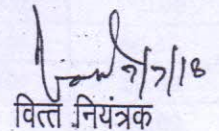 9/7/18
वित्त नियंत्रक